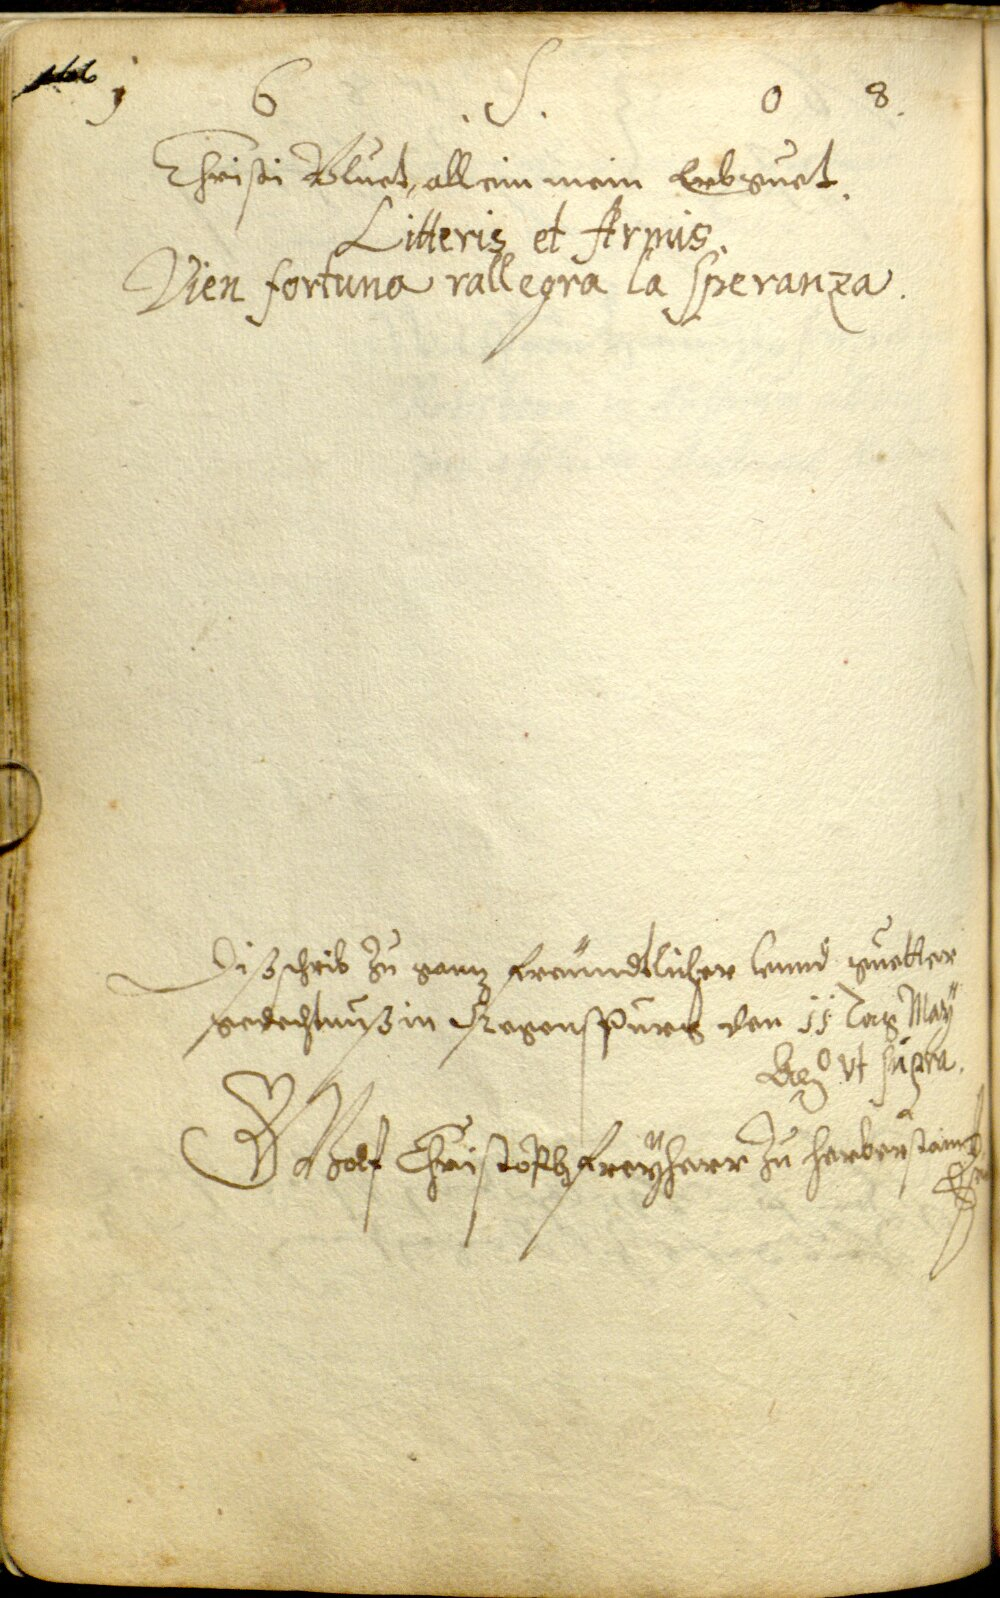 1 6 .S. 0 8.
Christi Bluet, allein mein Erbguet.
Litteris et Armis.
Vien fortuna rallegra la speranza.
Diß schrib Zu ganz freündtlicher guetter
gedechtnuß in Regenspurg den 11 Tag Maÿ
Aõ vt supra.
Wolf Christoph Freÿherr Zu Herberstain